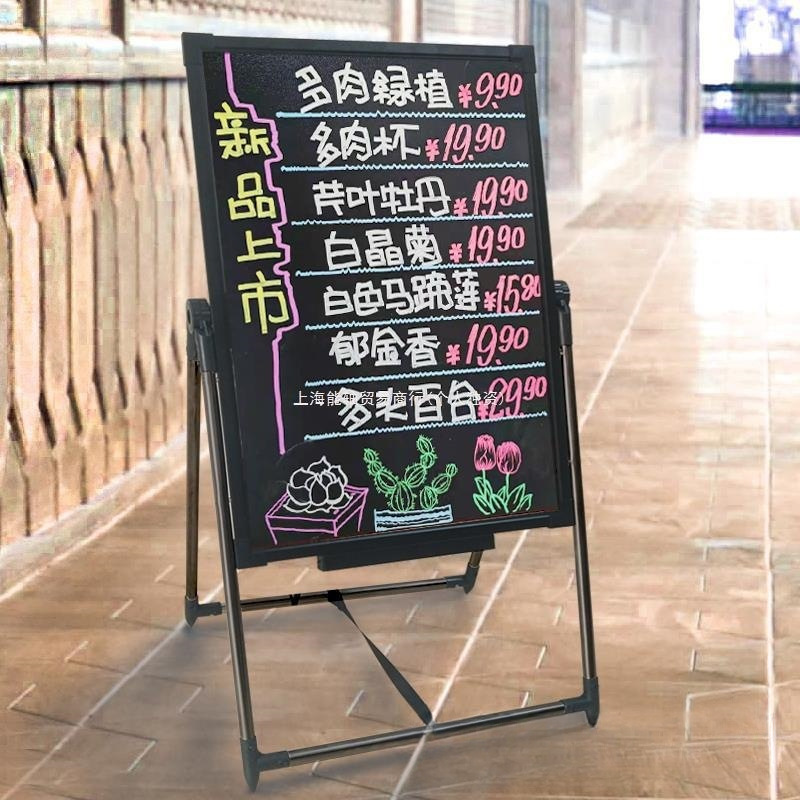 新品上市
多肉绿植 ¥9.90
多肉杯 ¥19.90
芹叶牡丹 ¥19.90
白晶菊 ¥19.90
白色马蹄莲 ¥15.80
郁金香 ¥19.90
多头百合 ¥29.90
上海能 贸易商行(个人独资)